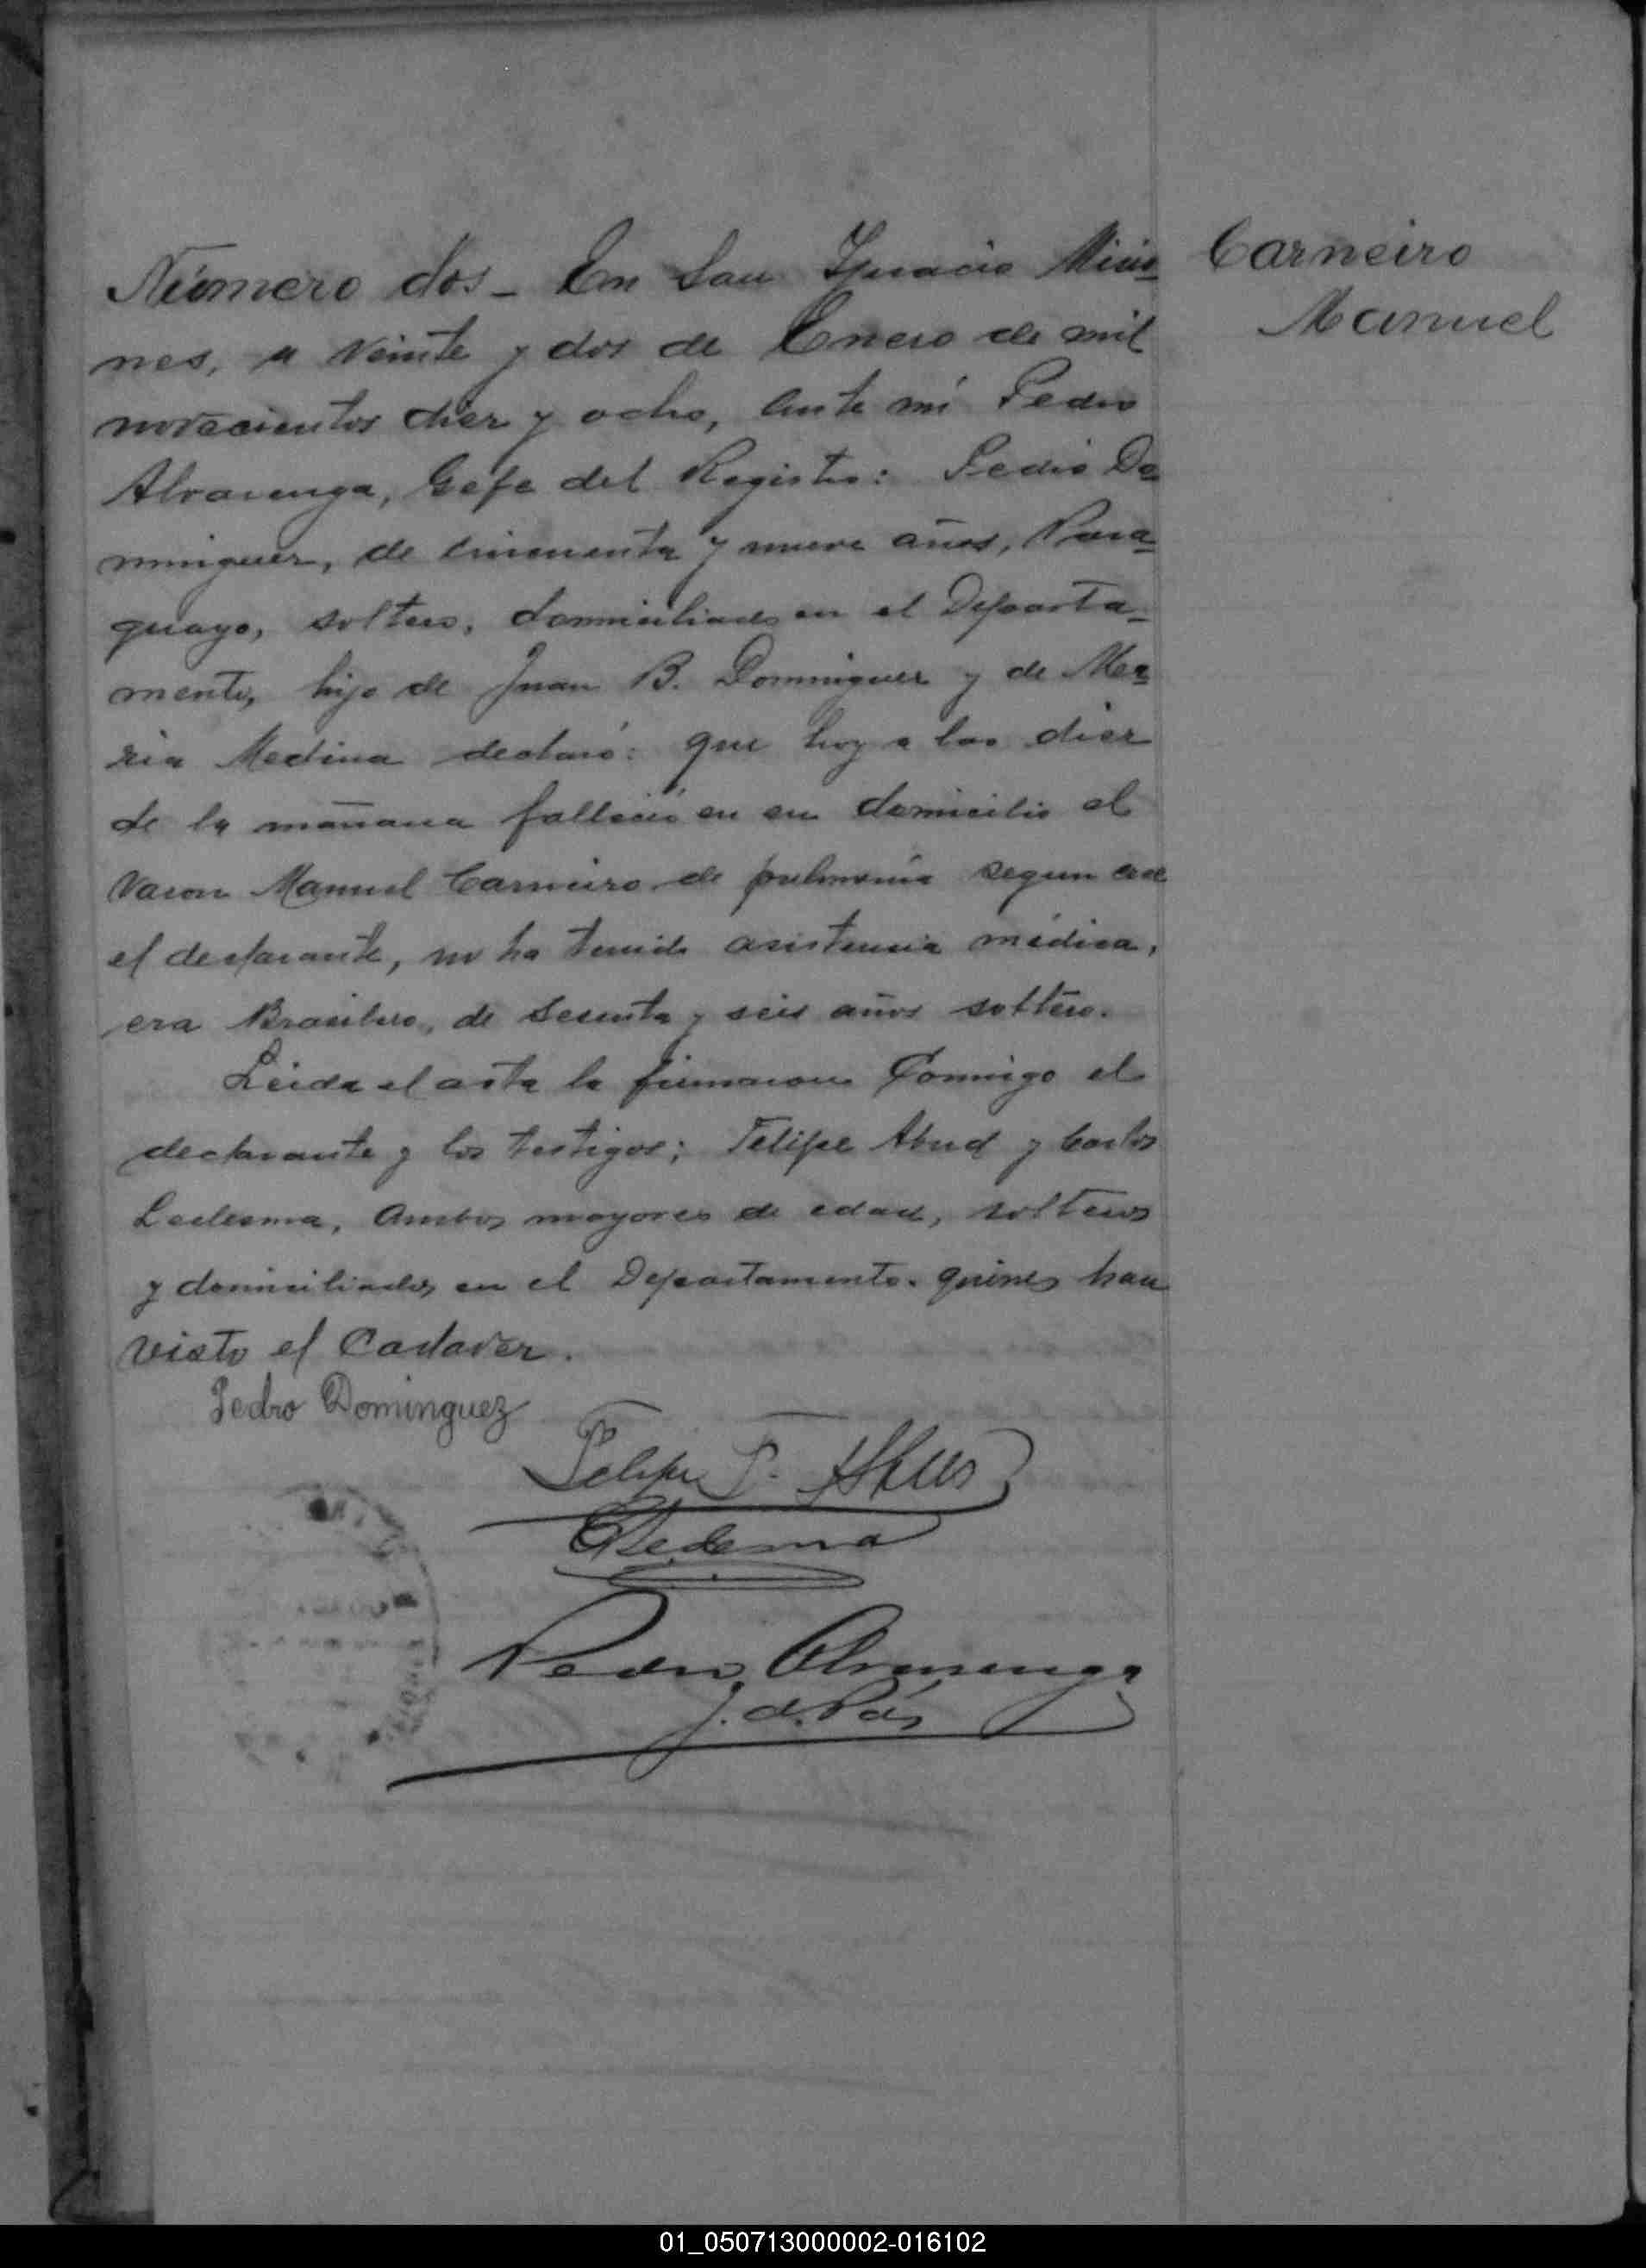 Número dos_ En San Ignacio Misio=
nes, a veinte y dos de Enero de mil
novecientos diez y ocho, ante mí Pedro
Alvarenga, Gefe del Registro: Pedro Do=
minguez, de cincuenta y nueve años, Para=
guayo, soltero, domiciliado en el Departa=
mento, hijo de Juan B. Dominguez y de Ma=
ria Medina declaró: que hoy a las diez
de la mañana falleció en su domicilio el
varon Manuel Carneiro de pulmonía segun cree
el declarante, no ha tenido asistencia médica,
era Brasilero, de sesenta y seis años soltero.
Leida el acta la firmaron Conmigo el
declarante y los testigos; Felipe Abud y Carlos
Ledesma, Ambos mayores de edad, solteros
y domiciliados en el Departamento. quines han
visto el Cadaver.
Pedro Dominguez
Felipe
C Ledesma
Pedro Alvarenga
J. d. Páz
Carneiro
Manuel
01_050713000002-016102